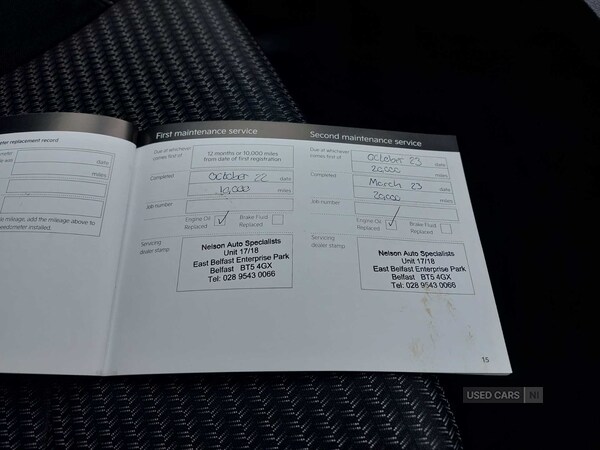 meter replacement record
date
miles
mileage, add the mileage above to
speedometer installed.
First maintenance service
Due at whichever
comes first of
12 months or 10,000 miles
from date of first registration
Completed
October 22 date
10,000 miles
Job number
Engine Oil
Replaced
Brake Fluid
Replaced
Servicing
dealer stamp
Nelson Auto Specialists
Unit 17/18
East Belfast Enterprise Park
Belfast BT5 4GX
Tel: 028 9543 0066
Second maintenance service
Due at whichever
comes first of
October 23 date
20,000 miles
Completed
March 23 date
20,000 miles
Job number
Engine Oil
Replaced
Brake Fluid
Replaced
Servicing
dealer stamp
Nelson Auto Specialists
Unit 17/18
East Belfast Enterprise Park
Belfast BT5 4GX
Tel: 028 9543 0066
15
USED CARS NI